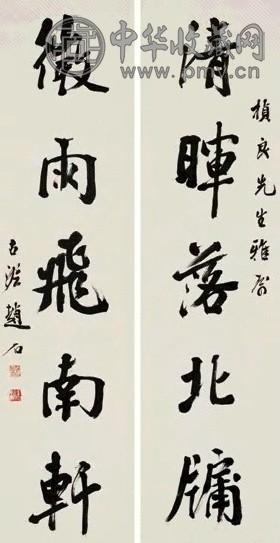 中华收藏网
www.pmv.cn
楨良先生雅屬
清暉落北牖
微雨飛南軒
古泥趙石